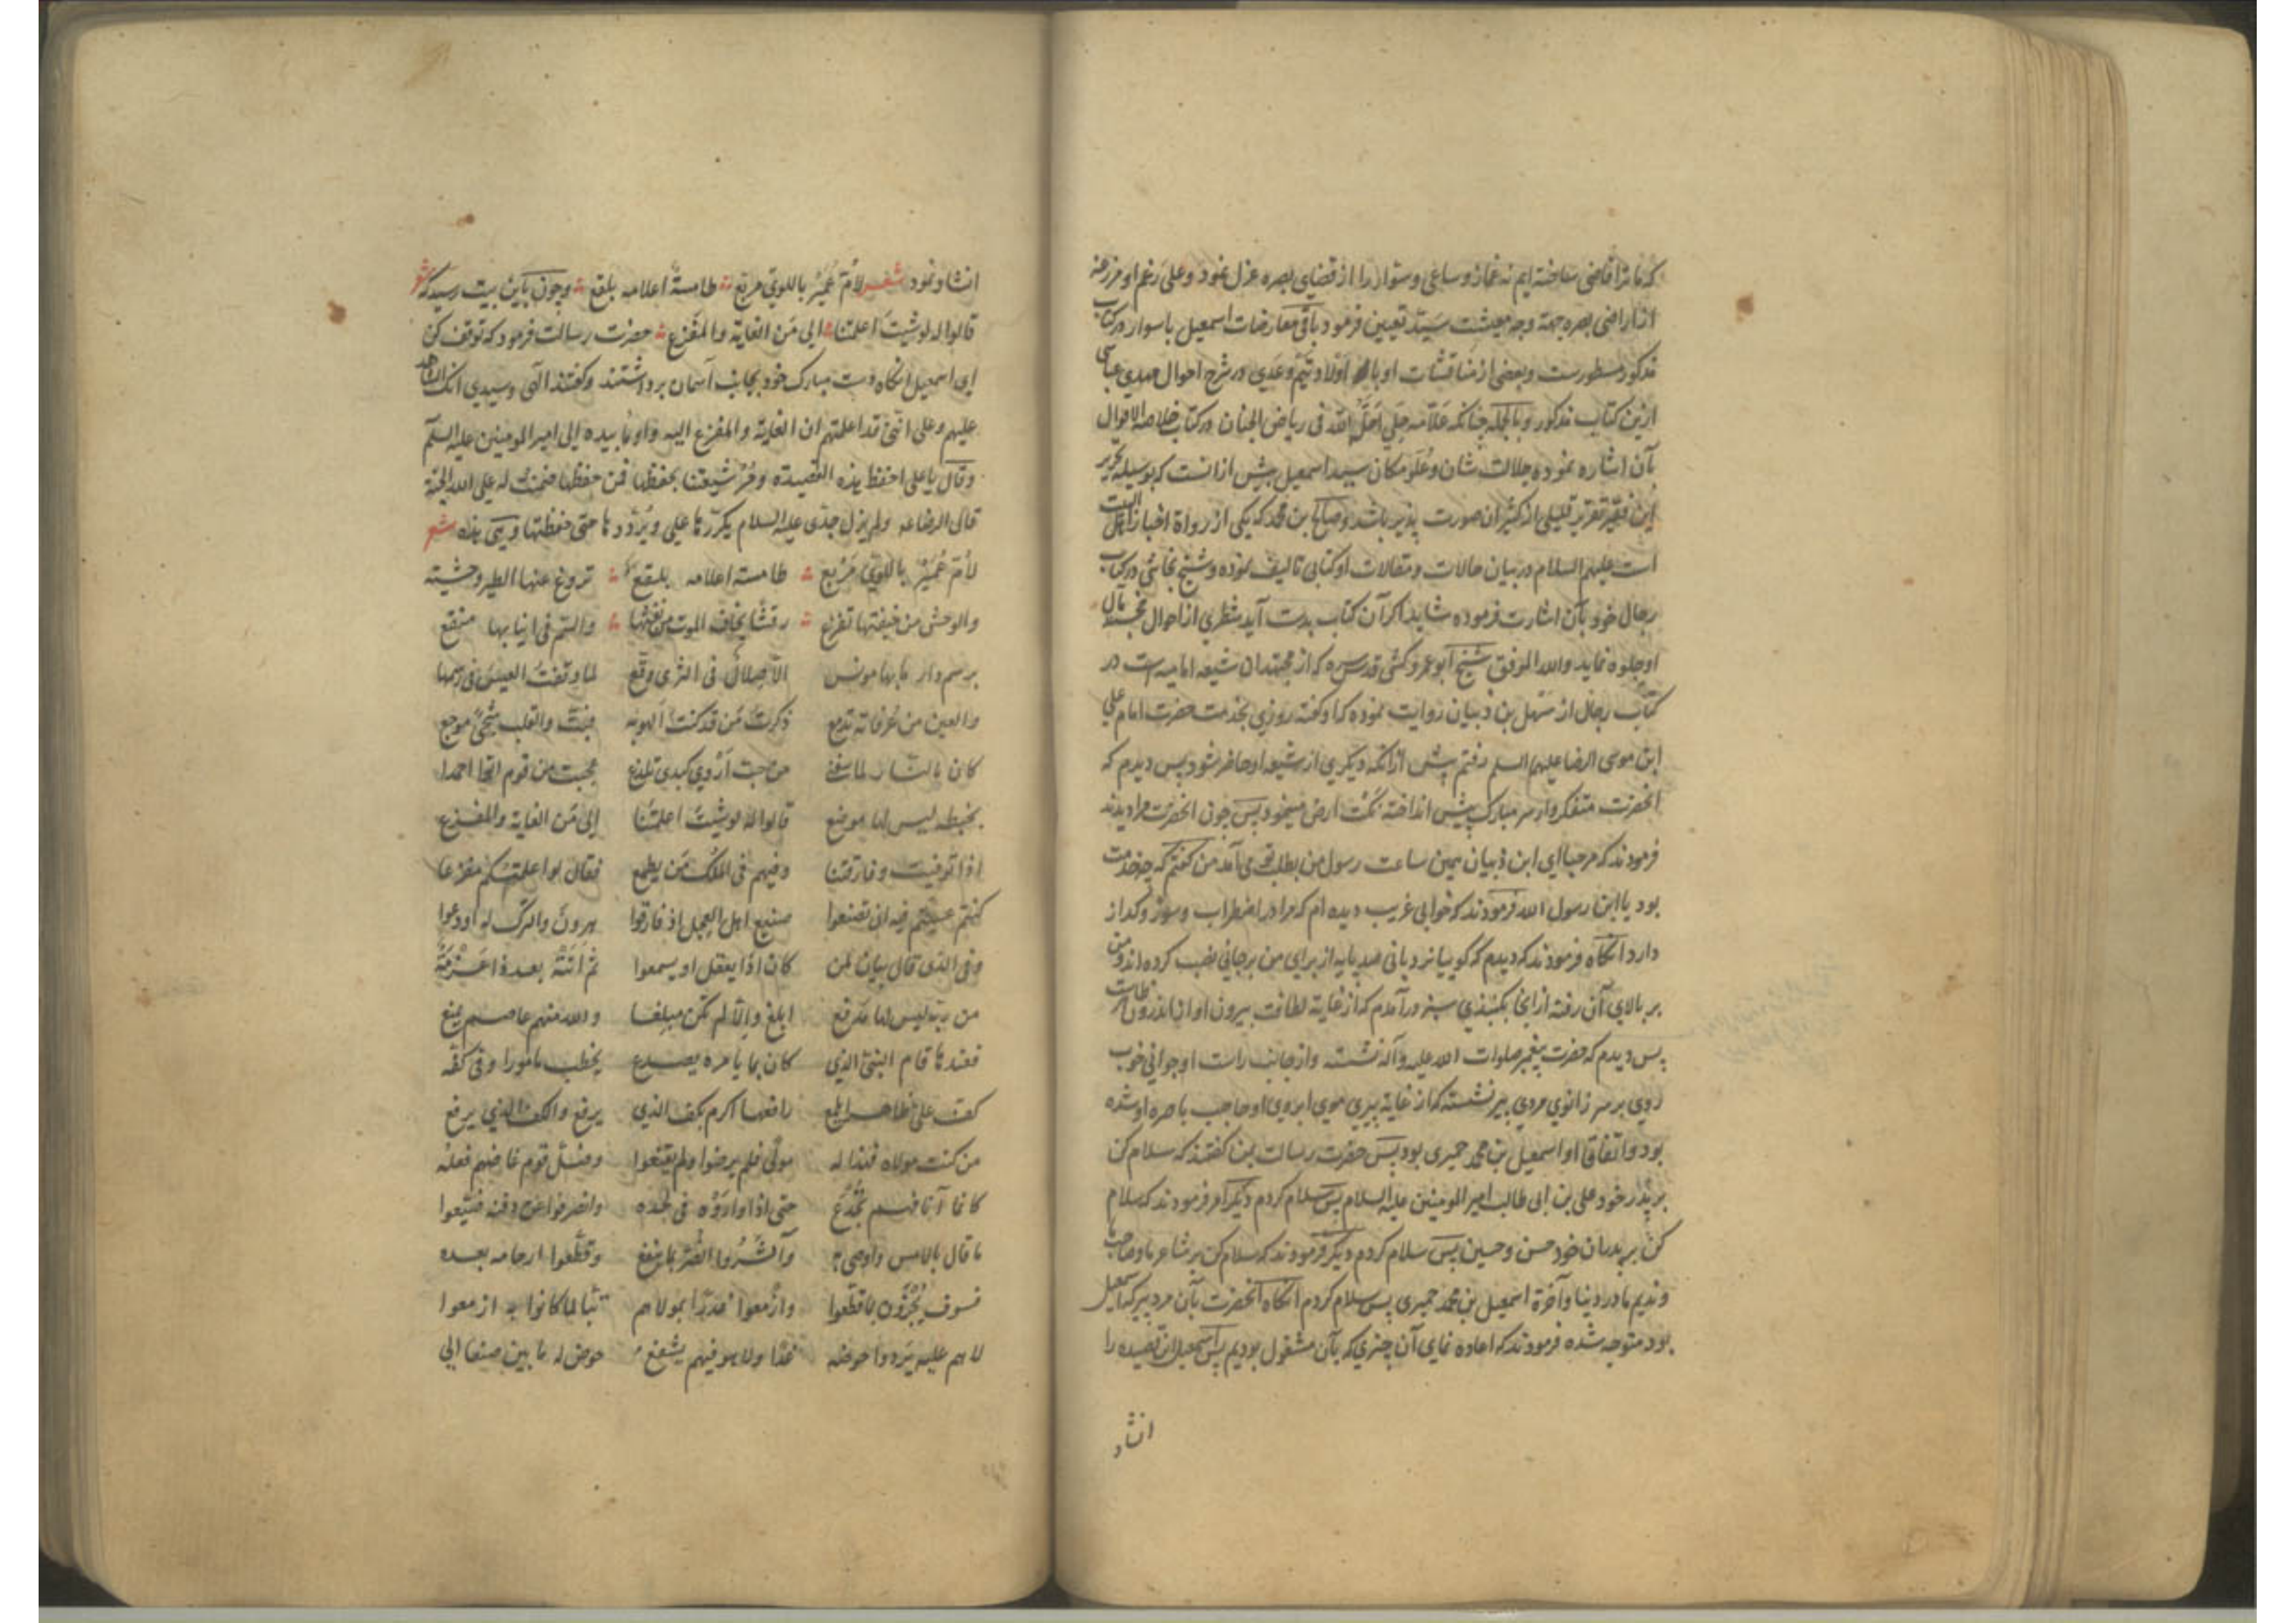 که ما ترا قاضی ساخته‌ایم نه غماز و ساعی و سوار را از قضای بصره عزل نمود و علی رغم او مزرعه
از اراضی بصره جهة وجه معیشت سید تعیین فرمود باقی معارضات اسمعیل با سوار در کتاب
مذکور مسطورست و بعضی از مناقشات او با اولاد تیم و عدی در شرح احوال مهدی عباسی
ازین کتاب مذکور و بالجمله چنانکه علامه حلی احله الله فی ریاض الجنان در کتاب خلاصة الاقوال
بآن اشاره نموده جلالت شان و علو مکان سید اسمعیل بیش از انست که بوسیله تحریر
این فقیر تقریر قلیلی از کثیر ان صورت پذیر باشد و صالح بن محمد که یکی از رواة اخبار اهل البیت
است علیهم السلام در بیان حالات و مقالات او کتابی تالیف نموده و شیخ نجاشی در کتاب
رجال خود بآن اشارت فرموده شاید اگر آن کتاب بدست آید شطری از احوال خجسته مآل
او جلوه نماید والله الموفق شیخ ابو عمرو کشی قدس سره که از مجتهدان شیعه امامیه است در
کتاب رجال از سهل بن ذبیان روایت نموده که او گفته روزی بخدمت حضرت امام علی
ابن موسی الرضا علیهما السلم رفتم پیش ازانکه دیگری از شیعه او حاضر شود پس دیدم که
انحضرت متفکروار سر مبارک پیش انداخته نکت ارض مینمود پس چون انحضرت مرا دیدند
فرمودند که مرحبا ای ابن ذبیان همین ساعت رسول من بطلب تو می آمد من گفتم که چه خدمت
بود یا ابن رسول الله فرمودند که خوابی غریب دیده ام که مرا در اضطراب و سوز و گداز
دارد انگاه فرمودند که دیدم که گوییا نردبانی صد پایه از برای من برجائی نصب کرده اند و من
بر بالای آن رفته از انجا بگنبذی سبز درآمدم که از غایة لطافت بیرون او از اندرون
پس دیدم که حضرت پیغمبر صلوات الله علیه و آله نشسته و از جانب راست او جوانی خوب
روی بر سر زانوی مردی پیر نشسته که از غایة پیری موی ابروی او حاجب باصره او شده
بود و اتفاقا او اسمعیل بن محمد حمیری بود پس حضرت رسالت بمن گفتند که سلام کن
بر پدر خود علی بن ابی طالب امیر المومنین علیه السلام پس سلام کردم دیگر امر فرمودند که سلام
کن بر پدران خود حسن و حسین پس سلام کردم دیگر فرمودند که سلام کن بر شاعر ما و صاحب ما
و ندیم ما در دنیا و آخرة اسمعیل بن محمد حمیری پس سلام کردم انگاه انحضرت بآن مرد پیر که اسمعیل
بود متوجه شده فرمودند که اعاده نمای آن چیزی که بآن مشغول بودیم پس اسمعیل ان قصیده را
انشاد
انشاد نمود شعر لام عمیر باللوی مربع طامسة اعلامه بلقع و چون باین بیت رسید که شعر
قالوا له لو شیت اعلمتنا الی من الغایة والمفزع حضرت رسالت فرمود که توقف کن
ای اسمعیل انگاه دست مبارک خود بجانب آسمان برداشتند و گفتند الهی و سیدی انک الشاهد
علیهم و علی انی قد اعلمتهم ان الغایة والمفزع الیه و اومأ بیده الی امیر المومنین علیه السلم
وقال یا علی احفظ هذه القصیدة و مُر شیعتنا بحفظها فمن حفظها ضمنت له علی الله الجنة
قال الرضا علیه و لم یزل جدی علیه السلام یکررها علی ویرددها حتی حفظتها و هی هذه شعر
لام عمیر باللوی مربع طامسة اعلامه بلقع تروغ عنها الطیر وحشیته
والوحش من خیفتها تفزع رقشا یخاف الموت من نفثها والسم فی انیابها منقع
برسم دار ما بها مونس الا صلال فی الثری وقع لما وقفت العیس فی رسمها
والعین من عرفانه تدمع ذکرت من قد کنت الهو به فبت والقلب شجی موجع
کان بالنار لما شفنی من حب اروی کبدی تلذع عجبت من قوم اتوا احمدا
بخطبه لیس لها موضع قالوا له لو شیت اعلمتنا الی من الغایة والمفزع
اذا توفیت و فارقتنا وفیهم فی الملک من یطمع فقال لو اعلمتکم مفزعا
کنتم عسیتم فیه ان تصنعوا صنیع اهل العجل اذ فارقوا هرون والترک له اودعوا
وفی الذی قال بیان لمن کان اذا یعقل او یسمعوا ثم اتته بعد ذا عزمة
من ربه لیس لها مدفع ابلغ والا لم تکن مبلغا والله منهم عاصم یمنع
فعندها قام النبی الذی کان بما یامره یصدع یخطب مامورا وفی کفه
کف علی ظاهرا یلمع رافعها اکرم بکف الذی یرفع والکف الذی یرفع
من کنت مولاه فهذا له مولی فلم یرضوا ولم یقنعوا وضل قوم غاضهم فعله
کانما آنافهم تجدع حتی اذا واروه فی لحده وانصرفوا عن دفنه ضیعوا
ما قال بالامس واوصی به واشتروا الضر بما ینفع وقطعوا ارحامه بعده
فسوف یجزون بما قطعوا وازمعوا غدرا بمولاهم تبا لما کانوا به ازمعوا
لا هم علیه یردوا حوضه غدا ولا هو فیهم یشفع حوض له ما بین صنعا الی